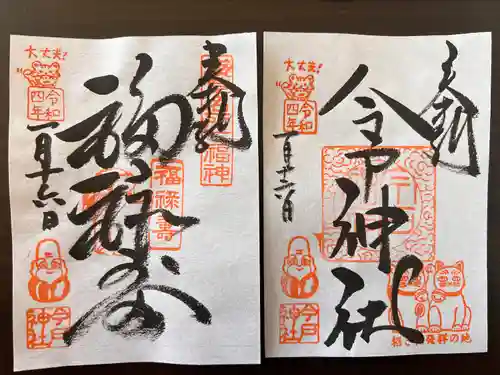 奉拝
福禄寿
福禄壽
大丈夫!
令和
四年
一月十六日
今戸
神社
奉拝
今戸神社
大丈夫!
令和
四年
一月十六日
今戸
神社
招き猫発祥の地